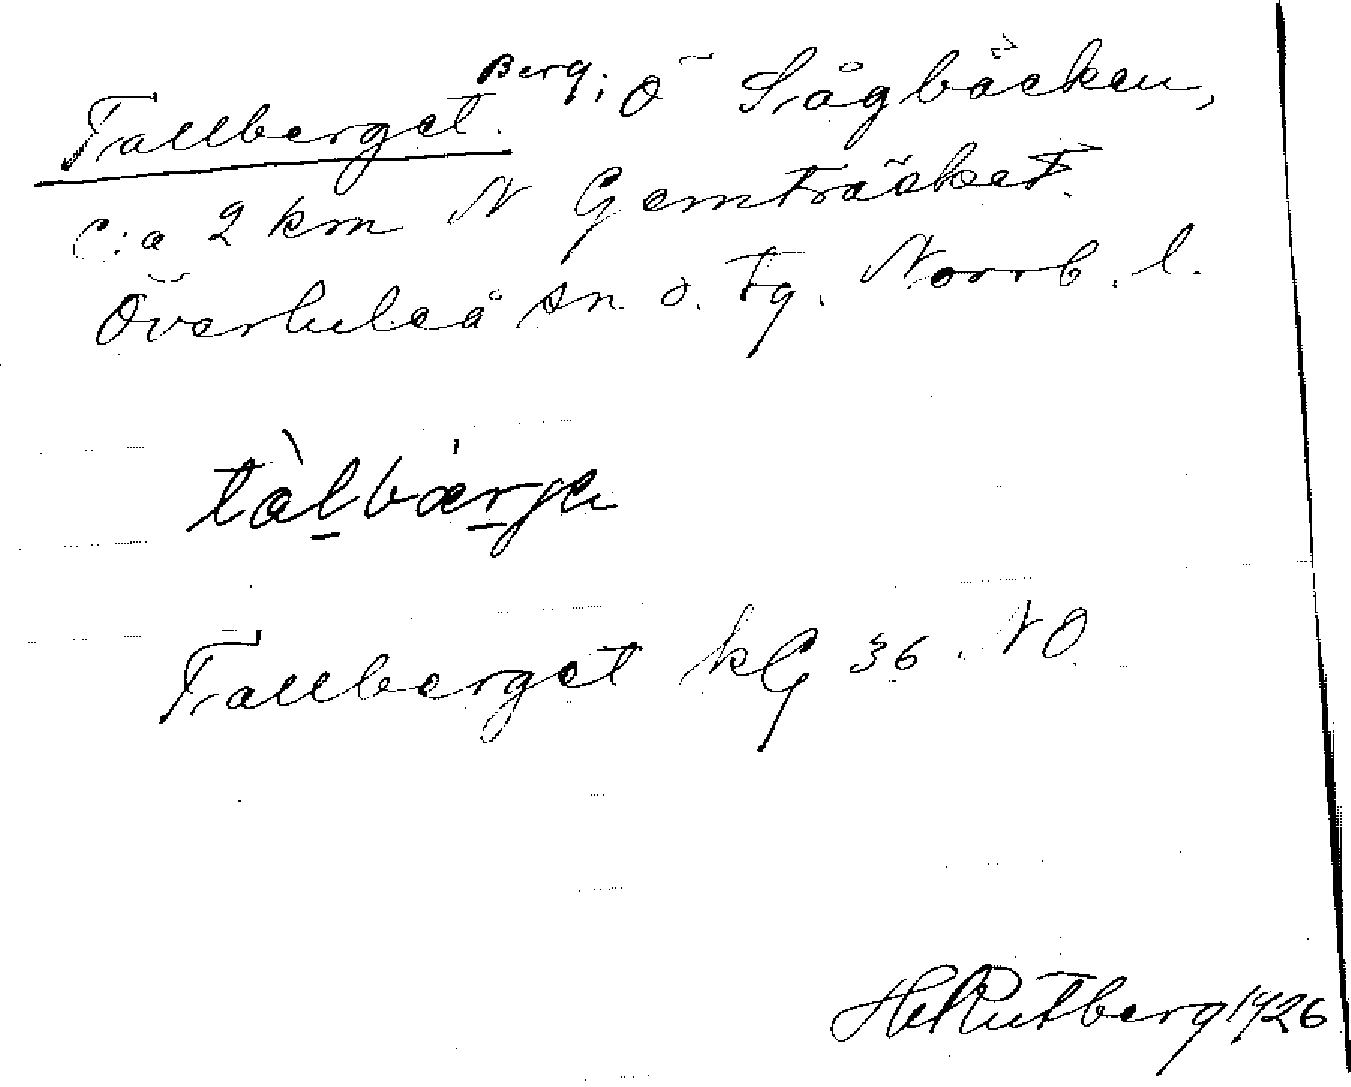 Tallberget. Berg; Ö Sågbäcken,
C:a 2 km N Gemträsket.
Överluleå sn o. tg. Norrb. l.
tàl̠bær̠je
Tallberget kG 36. NO
Hl Rutberg 1926